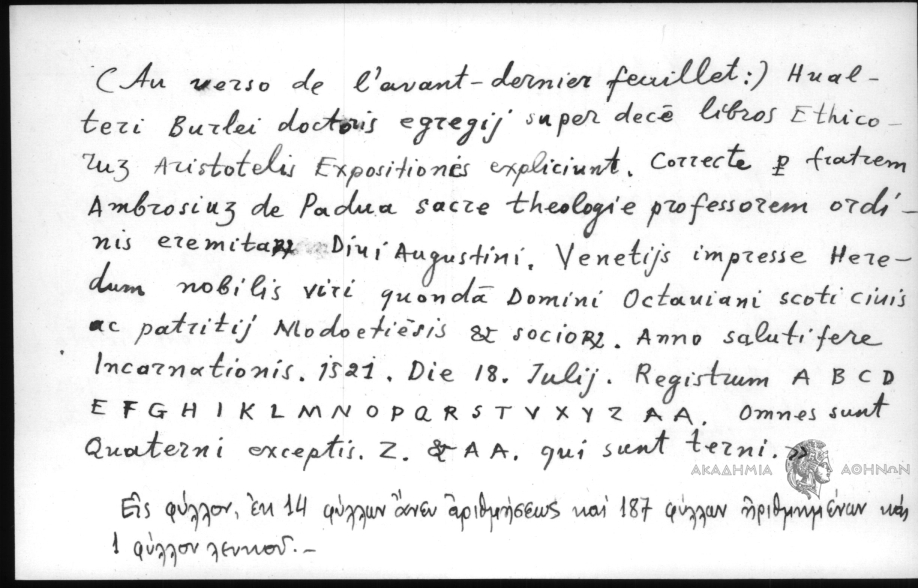 (Au verso de l'avant-dernier feuillet:) Hual-
teri Burlei doctoris egregij super decē libros Ethico-
ruꝫ Aristotelis Expositiones expliciunt. Correcte ꝑ fratrem
Ambrosiuꝫ de Padua sacre theologie professorem ordi-
nis eremitaꝝ Diui Augustini. Venetijs impresse Here-
dum nobilis viri quondā Domini Octauiani scoti ciuis
ac patritij Modoetiēsis & socioꝝ. Anno salutifere
Incarnationis. 1521. Die 18. Julij. Registrum A B C D
E F G H I K L M N O P Q R S T V X Y Z A A. Omnes sunt
Quaterni exceptis. Z. & A A. qui sunt terni.»
ΑΚΑΔΗΜΙΑ ΑΘΗΝΩΝ
Εἰς φύλλον, ἐκ 14 φύλλων ἄνευ ἀριθμήσεως καὶ 187 φύλλων ἠριθμημένων καὶ
1 φύλλον λευκοῦ.–